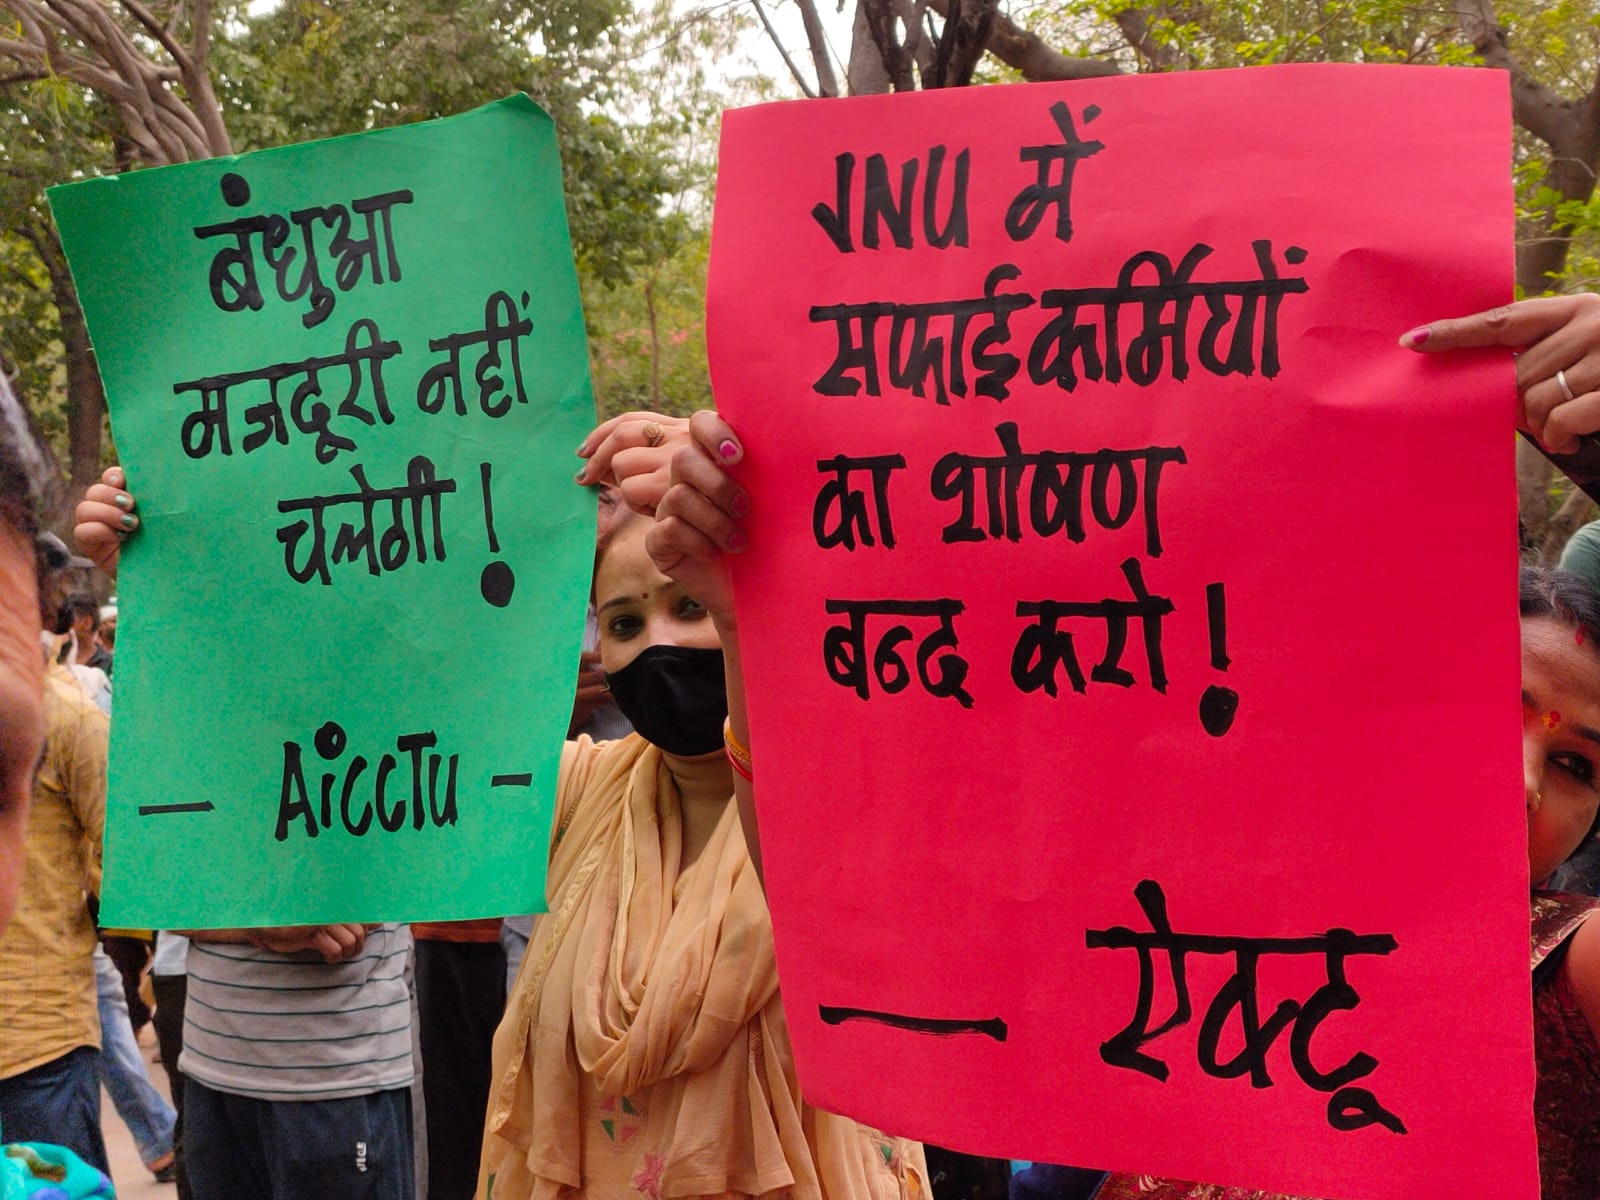 बंधुआ
मजदूरी नहीं
चलेगी !
— AiCCTU —
JNU में
सफाई कर्मियों
का शोषण
बन्द करो !
— ऐक्टू